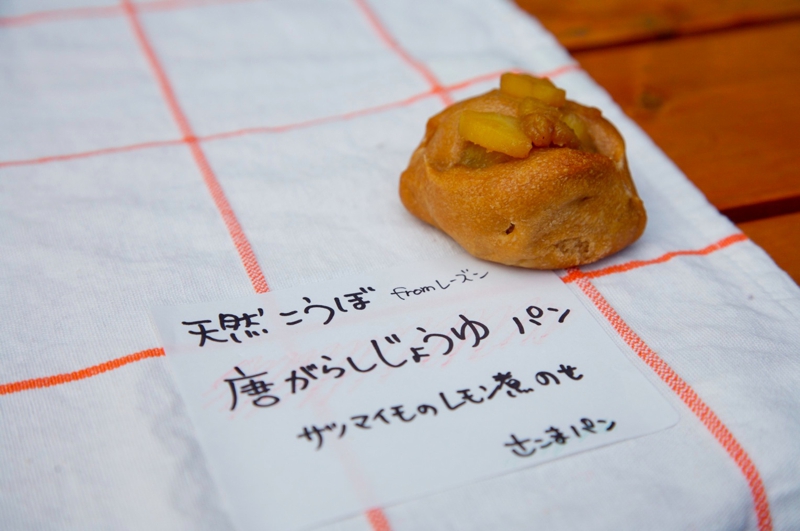 天然こうぼ fromレーズン
唐がらしじょうゆ パン
サツマイモのレモン煮のせ
さこまパン